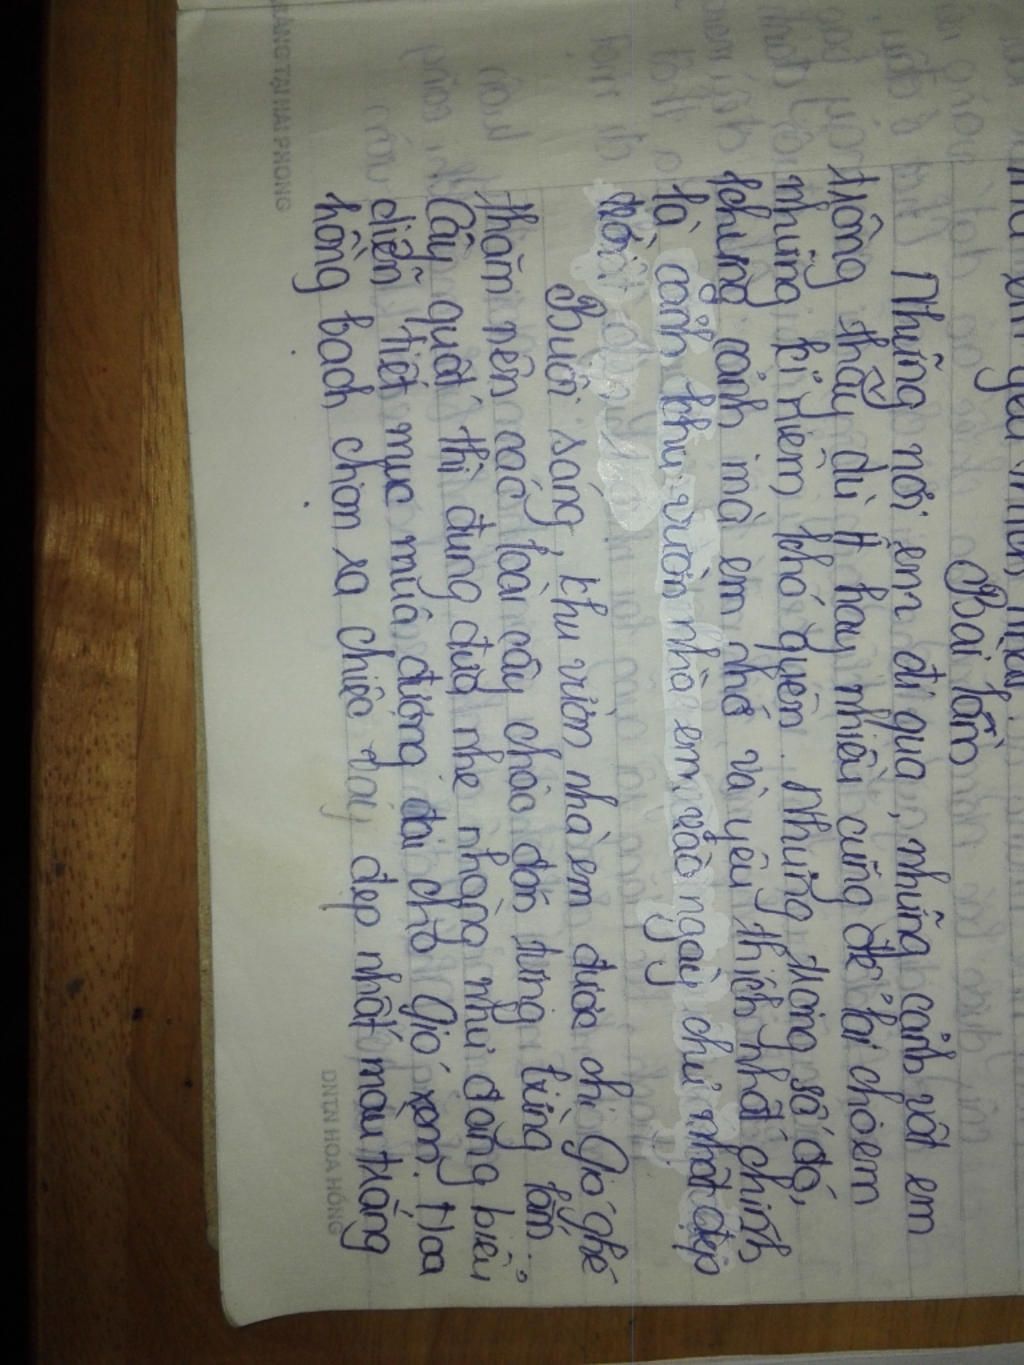 Bài làm
Những nơi em đi qua, những cảnh vật em
trông thấy dù ít hay nhiều cũng để lại cho em
những kỉ niệm khó quên. Nhưng trong số đó,
khung cảnh mà em nhớ và yêu thích nhất chính
là cảnh khu vườn nhà em vào ngày chủ nhật đẹp
trời
Buổi sáng, khu vườn nhà em được chị Gió ghé
thăm nên các loài cây chào đón tưng bừng lắm.
Cây quất thì đung đưa nhẹ nhàng như đang biểu
diễn tiết mục múa đương đại cho Gió xem. Hoa
hồng bạch chọn ra chiếc váy đẹp nhất màu trắng
ĐĂNG TẠI HẢI PHÒNG
DNTN HOA HỒNG